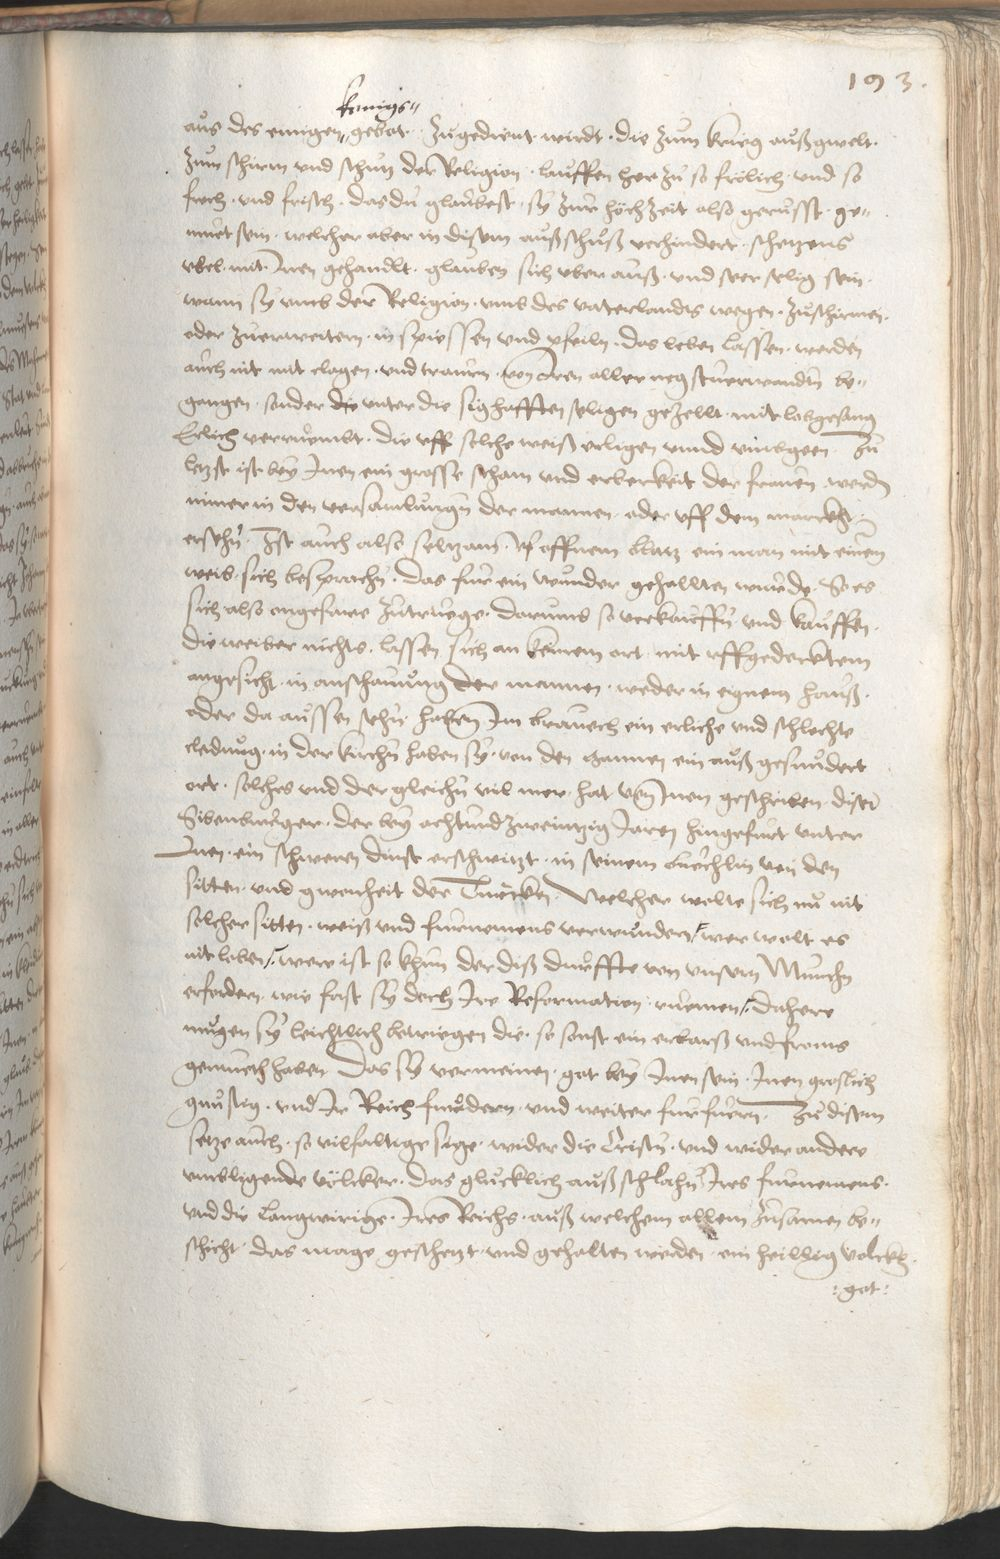 193.
konigs"
aus des einigen" gebot. Zugedient wirdt. die zum krieg außgwelt.
zum schirm und schutz der Religion. lauffen herzu so frölich. und so
frech. und frisch. das du glaubest. sy zur hochzeit also gerusst. ge"
muet sein. welcher aber in disem außschuß verhindert. schetzens
ubel. mit Inen gehandlt. glauben sich uber auß. und seer selig sein.
wann sy umb der Religion. umb des vaterlandts wegen. zuschirmen.
oder zuerweitern. in spiessen und pfeiln. das leben lassen. werden
auch nit mit clagen. und trauren. von Iren aller negstverwandtn be"
gangen. sonder die unter die sighafften seligen gezellt. mit lobgesang
Erlich verruembt. die uff solche weiß erligen unnd umbgeen. Zu
letzst ist bey Inen ein grosse scham und erberkeit der frauen. werdn
nimer in den versamlungn der mannen. oder uff dem marckht.
ersehn. Ist auch also seltzam. uf offnem blatz ein man mit einem
weib. sich besprachn. das fur ein wunder gehallten wurde. So es
sich also ongefare zutruege. darumb so verkauffn und kauffen.
die weiber nichts. lassen sich an keinem ort. mit uffgedecktem
angesicht. in anschauung der mannen. weder in eignem hauß.
oder da aussen sehn. haben Im brauch ein erliche und schlechte
cledung. in der kirchn haben sy. von den mannen ein auß gesundert
ort. solches und der gleichn vil mer. hat von Inen geschriben. diser
Sibenburger. der bey achtundzweintzig Jaren hingefurt unter
Inen. ein schweren dinst erschwitzt. in seinem buechlin von den
sitten. und gwonheit der Turckn. Welcher wolte sich nu nit
solcher sitten. weiß und furnemens verwundern. wer wolt es
nit loben. were ist so khun der diß durffte von unsern Munchn
erfordern. wie fast sy doch Ire Reformation. ruemen. dahere
mugen sy leichtlich betriegen die. so sonst ein erbarß und froms
gemueth haben. Das sy vermeinen. got bey Inen sein. Inen groslich
gunstig. und Ir Reich furdern. und weiter furfuern. Zu disem
setze auch. so vilfaltige sige. wider die Cristn. und wider andere
umbligende völcker. das glucklich außschlahn Ires furnemens.
und die langwirige. Ires Reichs. auß welchem allem zusamen be"
schicht. das mage geschetzt. und gehalten werden. ein heillig volckh.
: got :